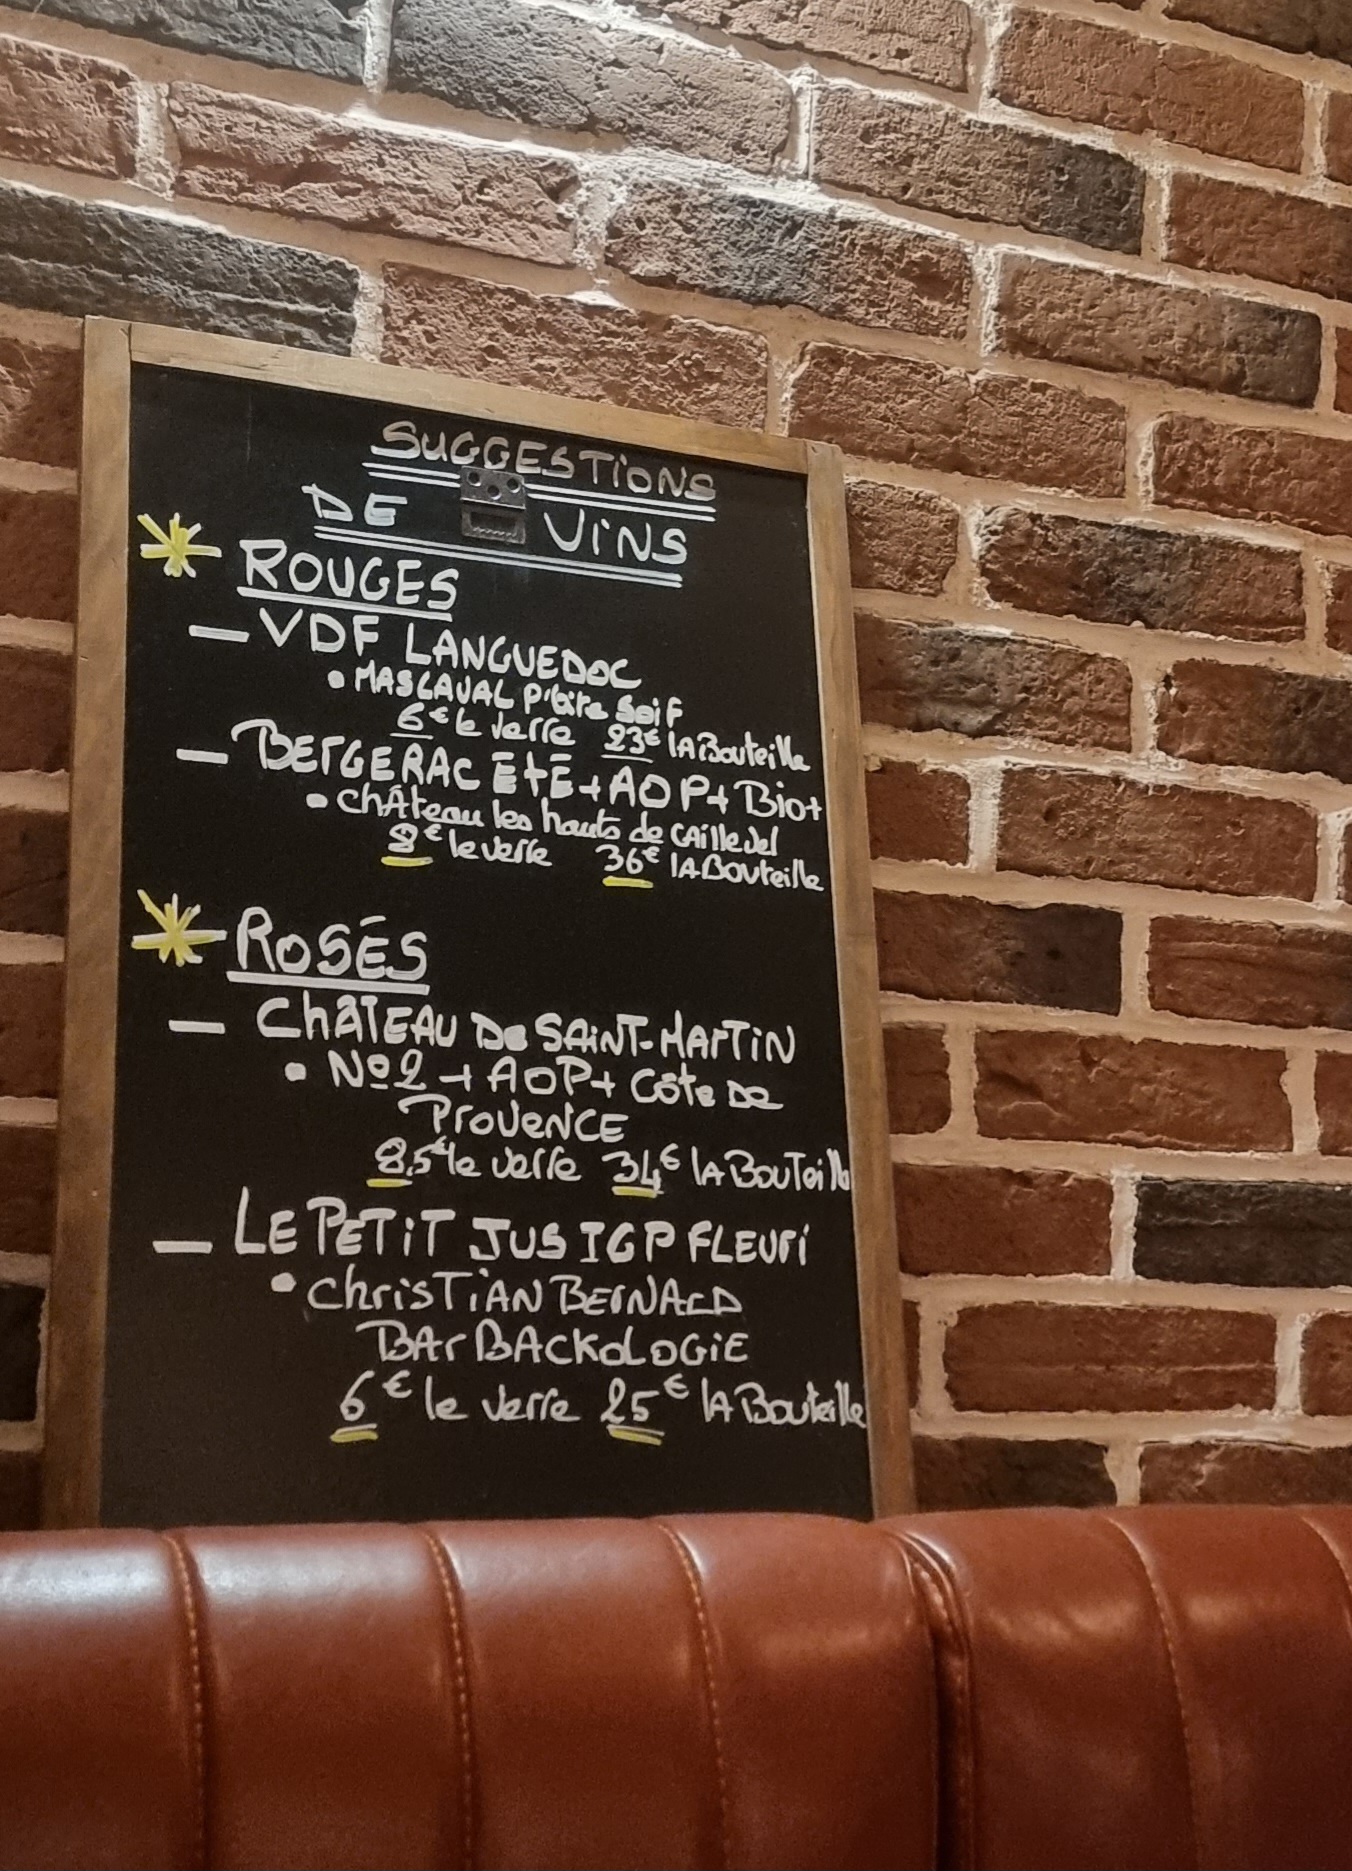 SUGGESTIONS
DE VINS
ROUGES
— VDF LANGUEDOC
• MAS LAVAL P'tite Soif
6€ le verre 23€ lA Bouteille
— BERGERAC ÉTÉ + AOP + Bio +
• Château les hauts de CAillevel
8€ le verre 36€ lA Bouteille
ROSÉS
— ChâTEAU De SAiNT-MArTiN
• Nº2 + AOP + Côte De
ProveNCE
8,5€ le verre 34€ lA BouTeille
— LE PETiT JUS IGP FLEUri
• ChrisTiAN BErNArD
BAr BACKoLOGiE
6€ le verre 25€ lA Bouteille